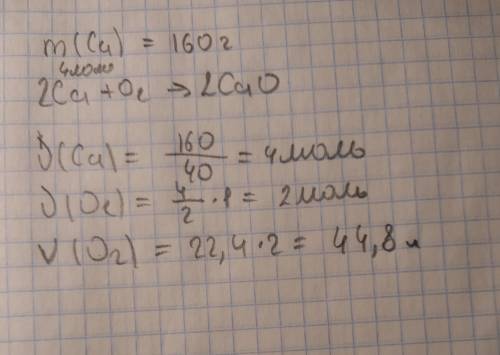 m(Ca) = 160 г
4 моль
2Ca + O₂ → 2CaO
ν(Ca) = 160/40 = 4 моль
ν(O₂) = 4/2 · 1 = 2 моль
V(O₂) = 22,4 · 2 = 44,8 л